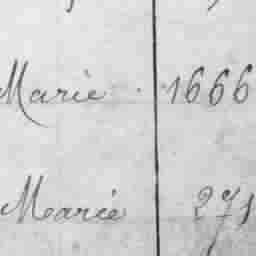 Marie 1666
Marie 271